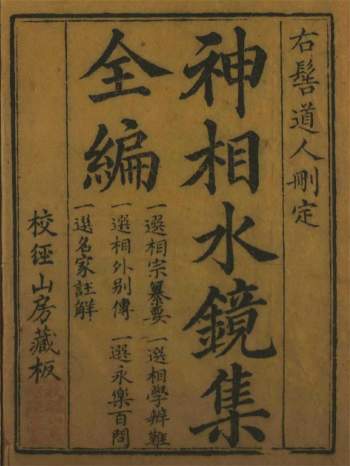 右髻道人刪定
神相水鏡集
全編
一選相宗纂要 一選相學辨難
一選相外别傳 一選永樂百問
一選名家註解
校經山房藏板